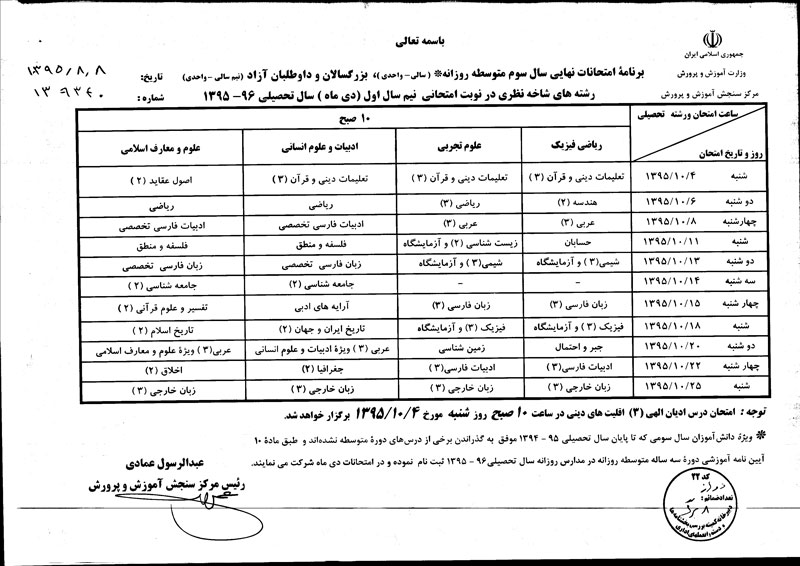 باسمه تعالی
جمهوری اسلامی ایران
وزارت آموزش و پرورش
مرکز سنجش آموزش و پرورش
تاریخ: ۱۳۹۵/۸/۸
شماره:
برنامهٔ امتحانات نهایی سال سوم متوسطه روزانه※ (سالی-واحدی)، بزرگسالان و داوطلبان آزاد (نیم سالی-واحدی)
رشته های شاخه نظری در نوبت امتحانی نیم سال اول (دی ماه) سال تحصیلی ۹۶-۱۳۹۵
ساعت امتحان ورشته تحصیلی
روز و تاریخ امتحان
۱۰ صبح
ریاضی فیزیک علوم تجربی ادبیات و علوم انسانی علوم و معارف اسلامی
شنبه ۱۳۹۵/۱۰/۴ تعلیمات دینی و قرآن (۳) تعلیمات دینی و قرآن (۳) تعلیمات دینی و قرآن (۳) اصول عقاید (۲)
دو شنبه ۱۳۹۵/۱۰/۶ هندسه (۲) ریاضی (۳) ریاضی ریاضی
چهارشنبه ۱۳۹۵/۱۰/۸ عربی (۳) عربی (۳) ادبیات فارسی تخصصی ادبیات فارسی تخصصی
شنبه ۱۳۹۵/۱۰/۱۱ حسابان زیست شناسی (۲) و آزمایشگاه فلسفه و منطق فلسفه و منطق
دو شنبه ۱۳۹۵/۱۰/۱۳ شیمی(۳) و آزمایشگاه شیمی(۳) و آزمایشگاه زبان فارسی تخصصی زبان فارسی تخصصی
سه شنبه ۱۳۹۵/۱۰/۱۴ - - جامعه شناسی (۲) جامعه شناسی (۲)
چهار شنبه ۱۳۹۵/۱۰/۱۵ زبان فارسی (۳) زبان فارسی (۳) آرایه های ادبی تفسیر و علوم قرآنی (۲)
شنبه ۱۳۹۵/۱۰/۱۸ فیزیک (۳) و آزمایشگاه فیزیک (۳) و آزمایشگاه تاریخ ایران و جهان (۲) تاریخ اسلام (۲)
دو شنبه ۱۳۹۵/۱۰/۲۰ جبر و احتمال زمین شناسی عربی (۳) ویژهٔ ادبیات و علوم انسانی عربی(۳) ویژهٔ علوم و معارف اسلامی
چهار شنبه ۱۳۹۵/۱۰/۲۲ ادبیات فارسی(۳) ادبیات فارسی(۳) جغرافیا (۲) اخلاق (۲)
شنبه ۱۳۹۵/۱۰/۲۵ زبان خارجی (۳) زبان خارجی (۳) زبان خارجی (۳) زبان خارجی (۳)
توجه : امتحان درس ادیان الهی (۳) اقلیت های دینی در ساعت ۱۰ صبح روز شنبه مورخ ۱۳۹۵/۱۰/۴ برگزار خواهد شد.
※ ویژهٔ دانش‌آموزان سال سومی که تا پایان سال تحصیلی ۹۵-۱۳۹۴ موفق به گذراندن برخی از درس‌های دورهٔ متوسطه نشده‌اند و طبق مادهٔ ۱۰
آیین نامه آموزشی دورهٔ سه ساله متوسطه روزانه در مدارس روزانه سال تحصیلی۹۶-۱۳۹۵ ثبت نام نموده و در امتحانات دی ماه شرکت می نمایند.
عبدالرسول عمادی
رئیس مرکز سنجش آموزش و پرورش
کد ۲۲
تعداد ضمائم:
۸ برگ
دبیرخانه کمیته بررسی بخشنامه‌ها
و دستورالعملهای اداری